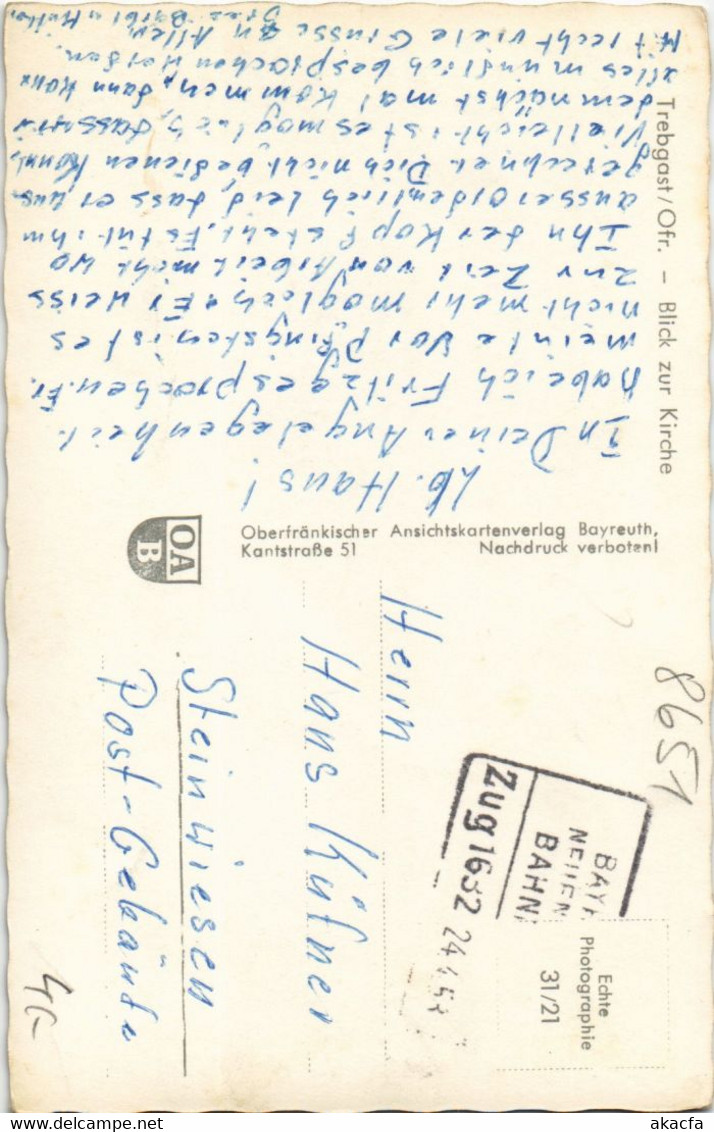 Trebgast/Ofr. – Blick zur Kirche
Lb. Hans!
In Deiner Angelegenheit
habe ich Fritz gesprochen. Er
meinte vor Pfingsten ist es
nicht mehr möglich. Er weiss
zur Zeit vor Arbeit nicht wo
Ihn der Kopf steht. Es tut ihm
ausserordentlich leid, dass er uns
Dich nicht bedienen konnt
Vielleicht ist es möglich, dass wir
demnächst mal kommen, dann kann
alles mündlich besprochen werden.
Mit recht viele Grüsse an Alle
OA
B
Oberfränkischer Ansichtskartenverlag Bayreuth,
Kantstraße 51 Nachdruck verboten!
Herrn
Hans Küfner
Steinwiesen
Post-Gebäude
8651
BAY
NEUEN
BAHN
Zug 1632
Echte
Photographie
31/21
www.delcampe.net
akacfa